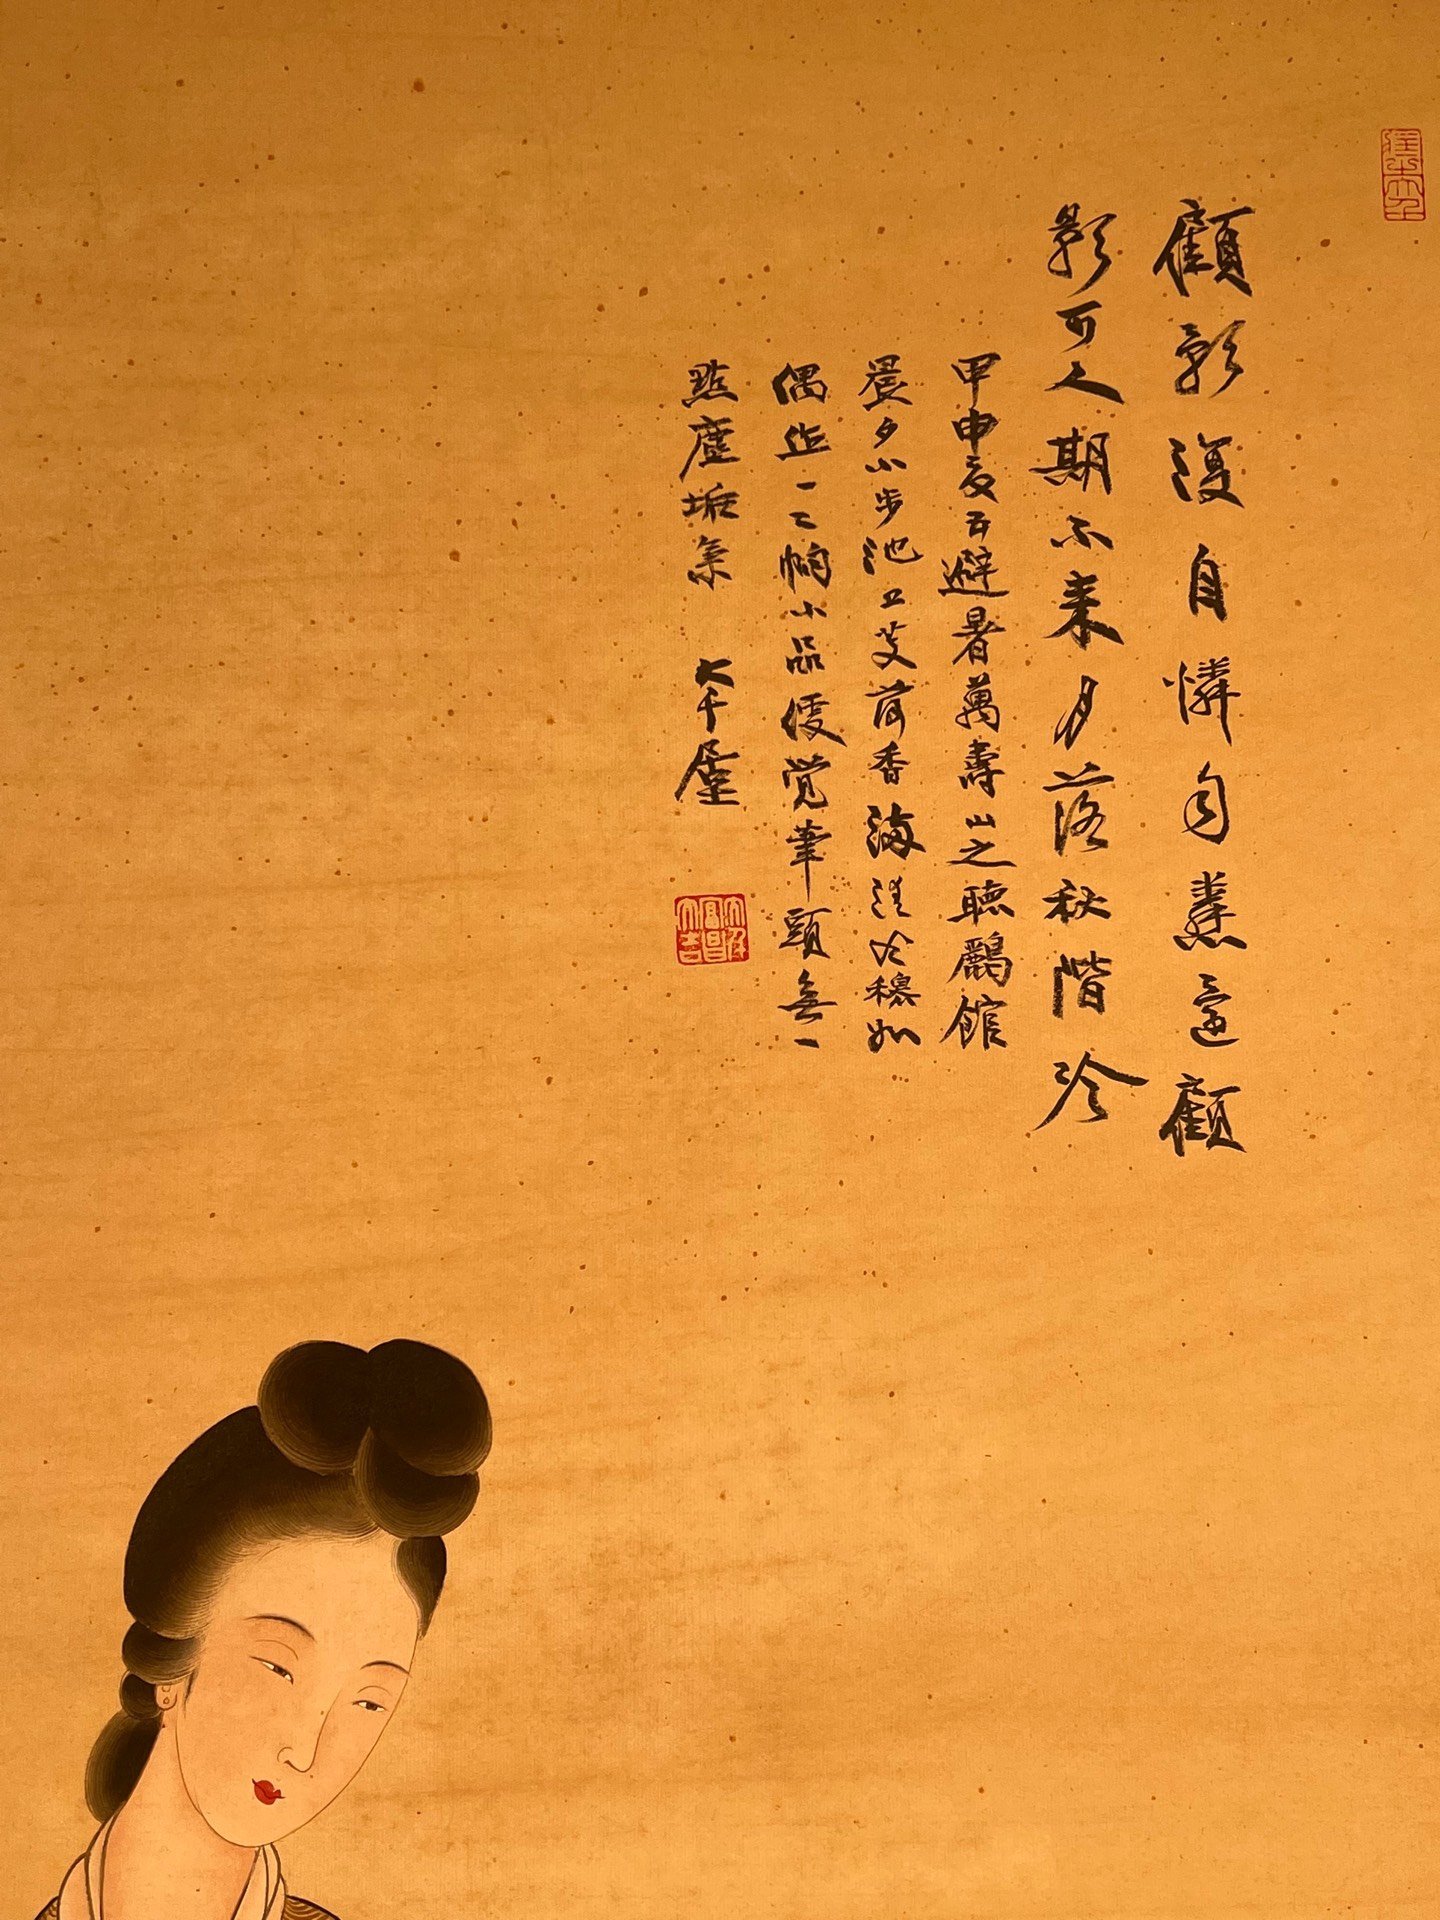 顧影復自憐自羞還顧
影可人期不來月落秋階冷
甲申夏五避暑萬壽山之聽鸝館
晨夕小步池上芰荷香滿清風穆如
偶作一二幀小品便覺筆頭無一
點塵垢氣 大千居士